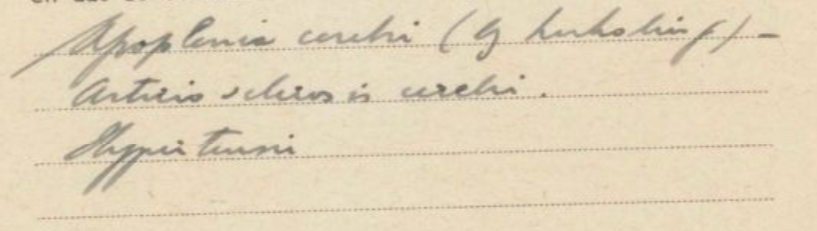 Apoplexia cerebri (bij herhaling) –
Arterio sclerosis cerebri.
Hypertensie